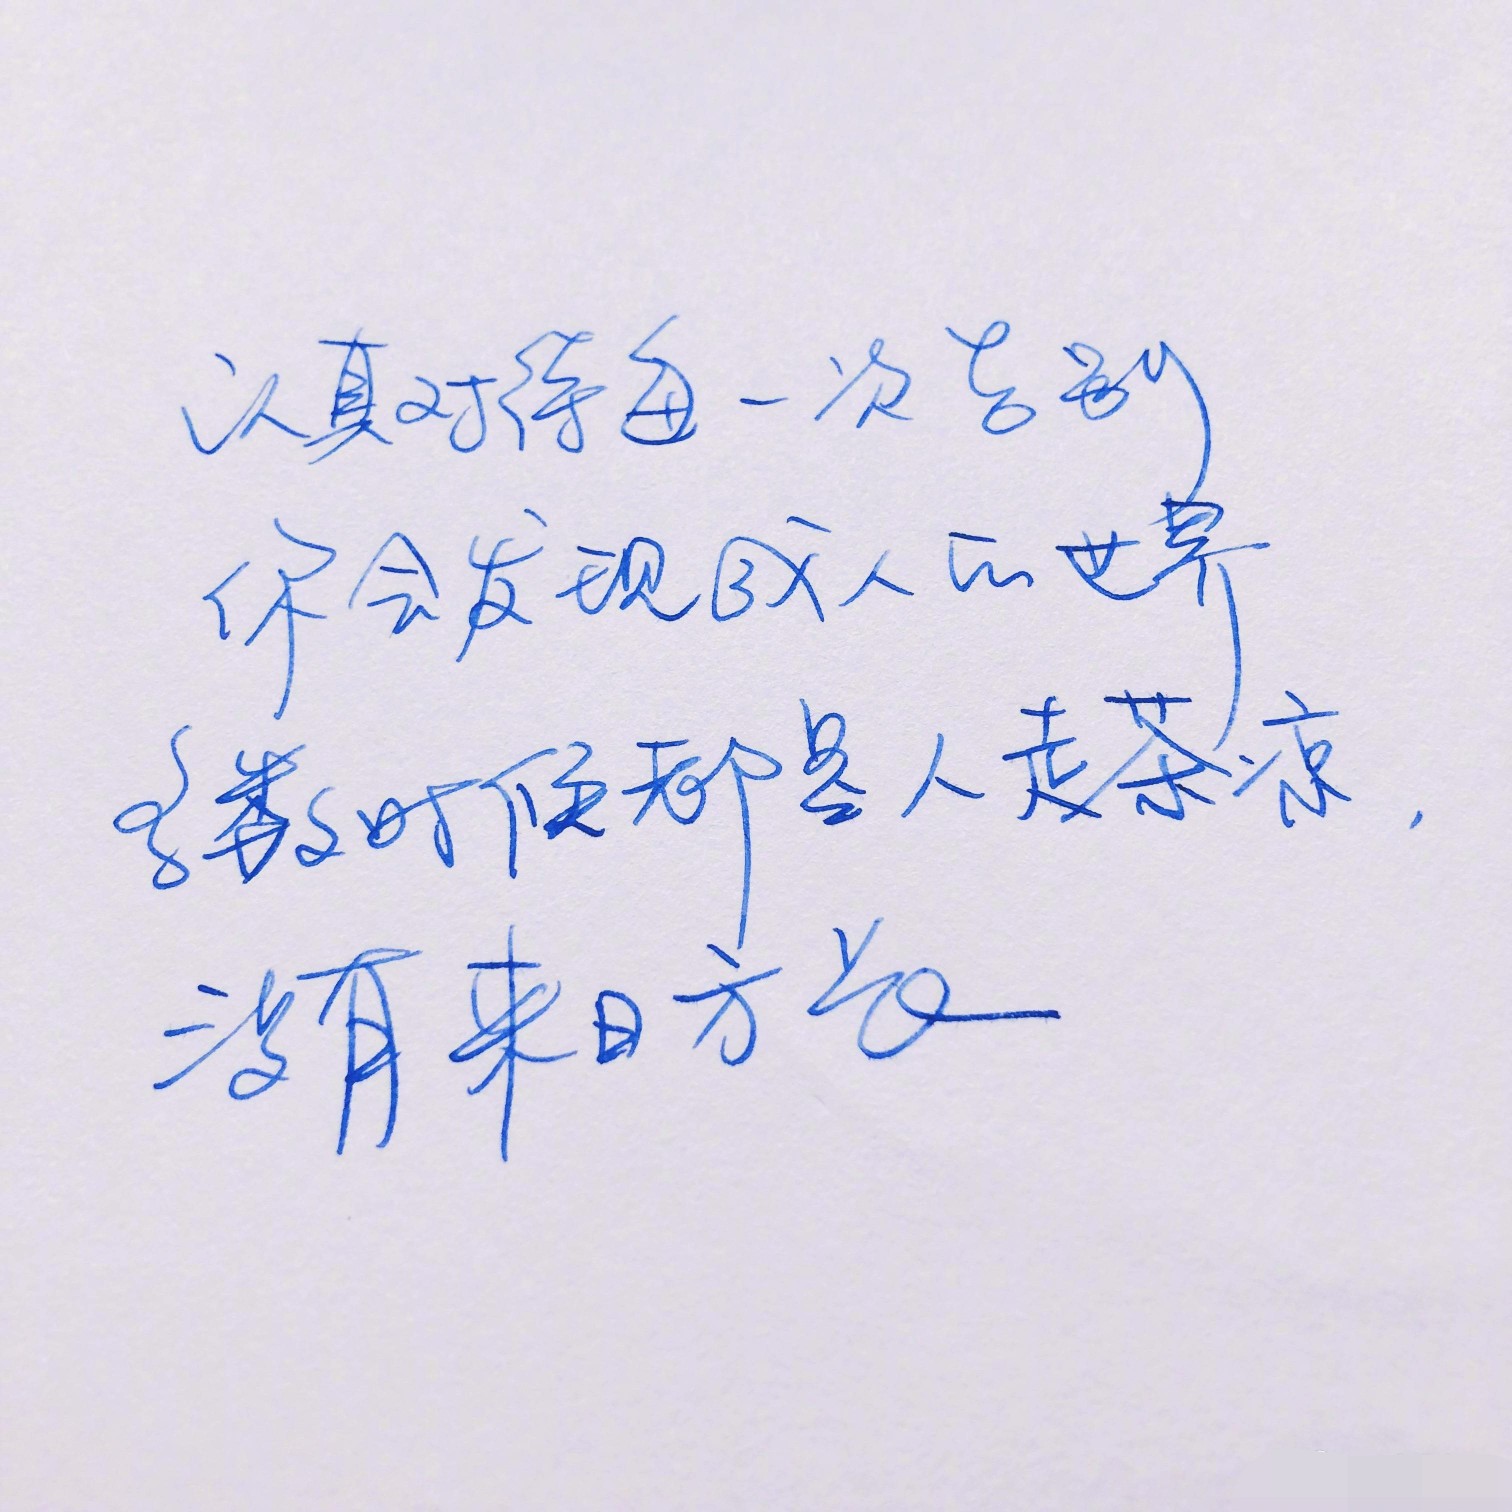 认真对待每一次告别
你会发现成人的世界
多数时候都是人走茶凉，
没有来日方长